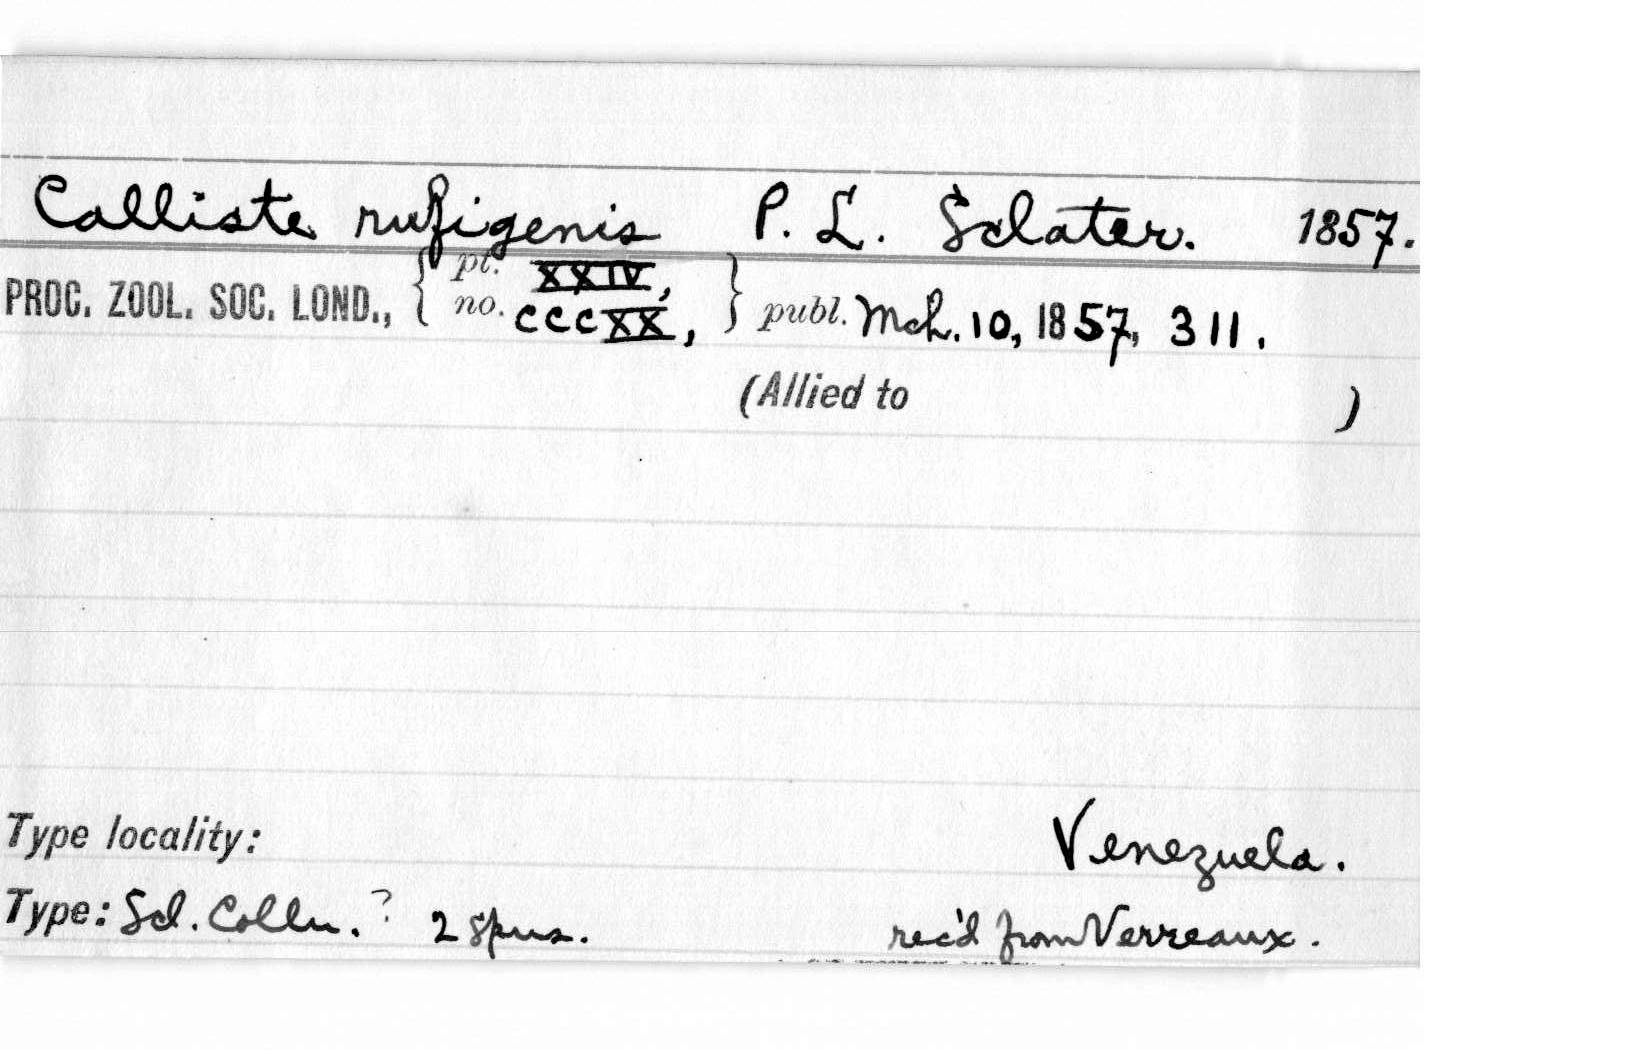 Calliste rufigenis P. L. Sclater. 1857.
PROC. ZOOL. SOC. LOND., { pt. XXIV, no. CCCXX, } publ. Mch. 10, 1857, 311.
(Allied to )
Type locality: Venezuela.
Type: Scl. Colln. ? 2 spns. rec'd from Verreaux.